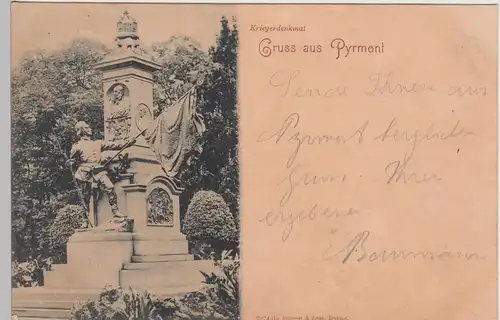 Kriegerdenkmal
Gruss aus Pyrmont
Sende Ihnen aus
Pyrmont herzlichen
Gruss. Ihre
ergebene
Baumann